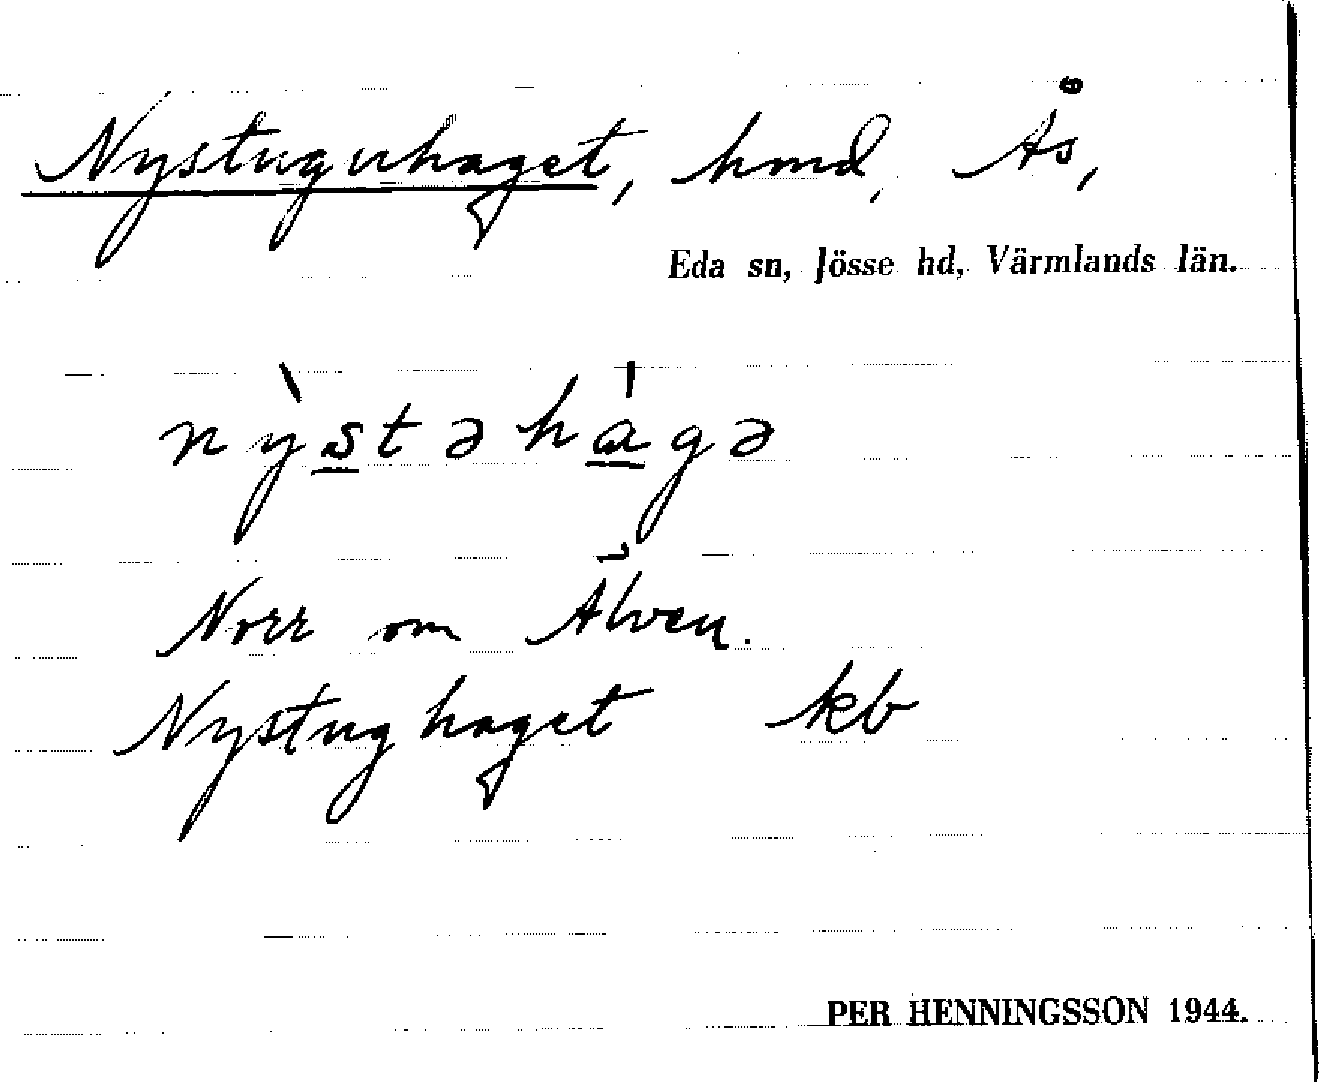 Nystuguhaget, hmd, Ås,
Eda sn, Jösse hd, Värmlands län.
nỳstəhágə
Norr om Älven.
Nystughaget kb
PER HENNINGSSON 1944.